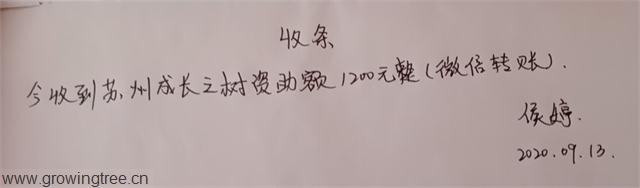 收条
今收到苏州成长之树资助额1200元整(微信转账).
侯婷.
2020.09.13.
www.growingtree.cn